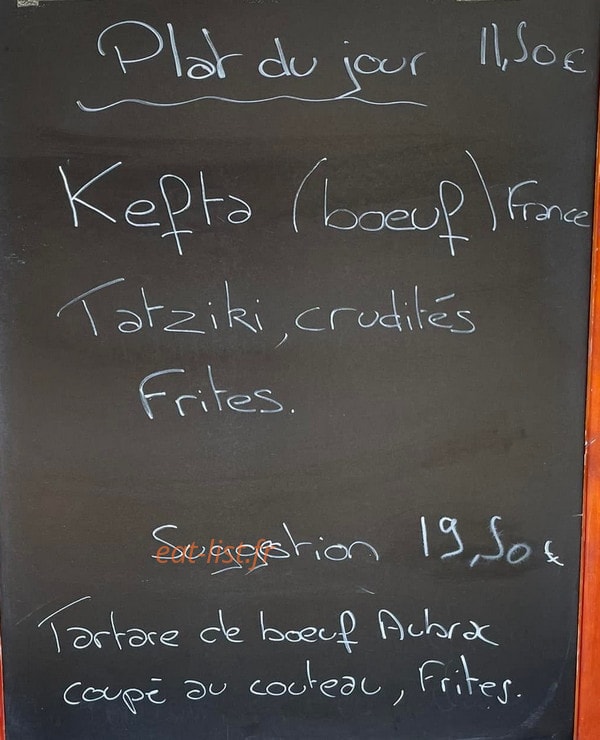 Plat du jour 11,50€
Kefta (boeuf) France
Tatziki, crudités
Frites.
Suggestion 19,50€
eat-list.fr
Tartare de boeuf Aubrac
coupé au couteau, Frites.